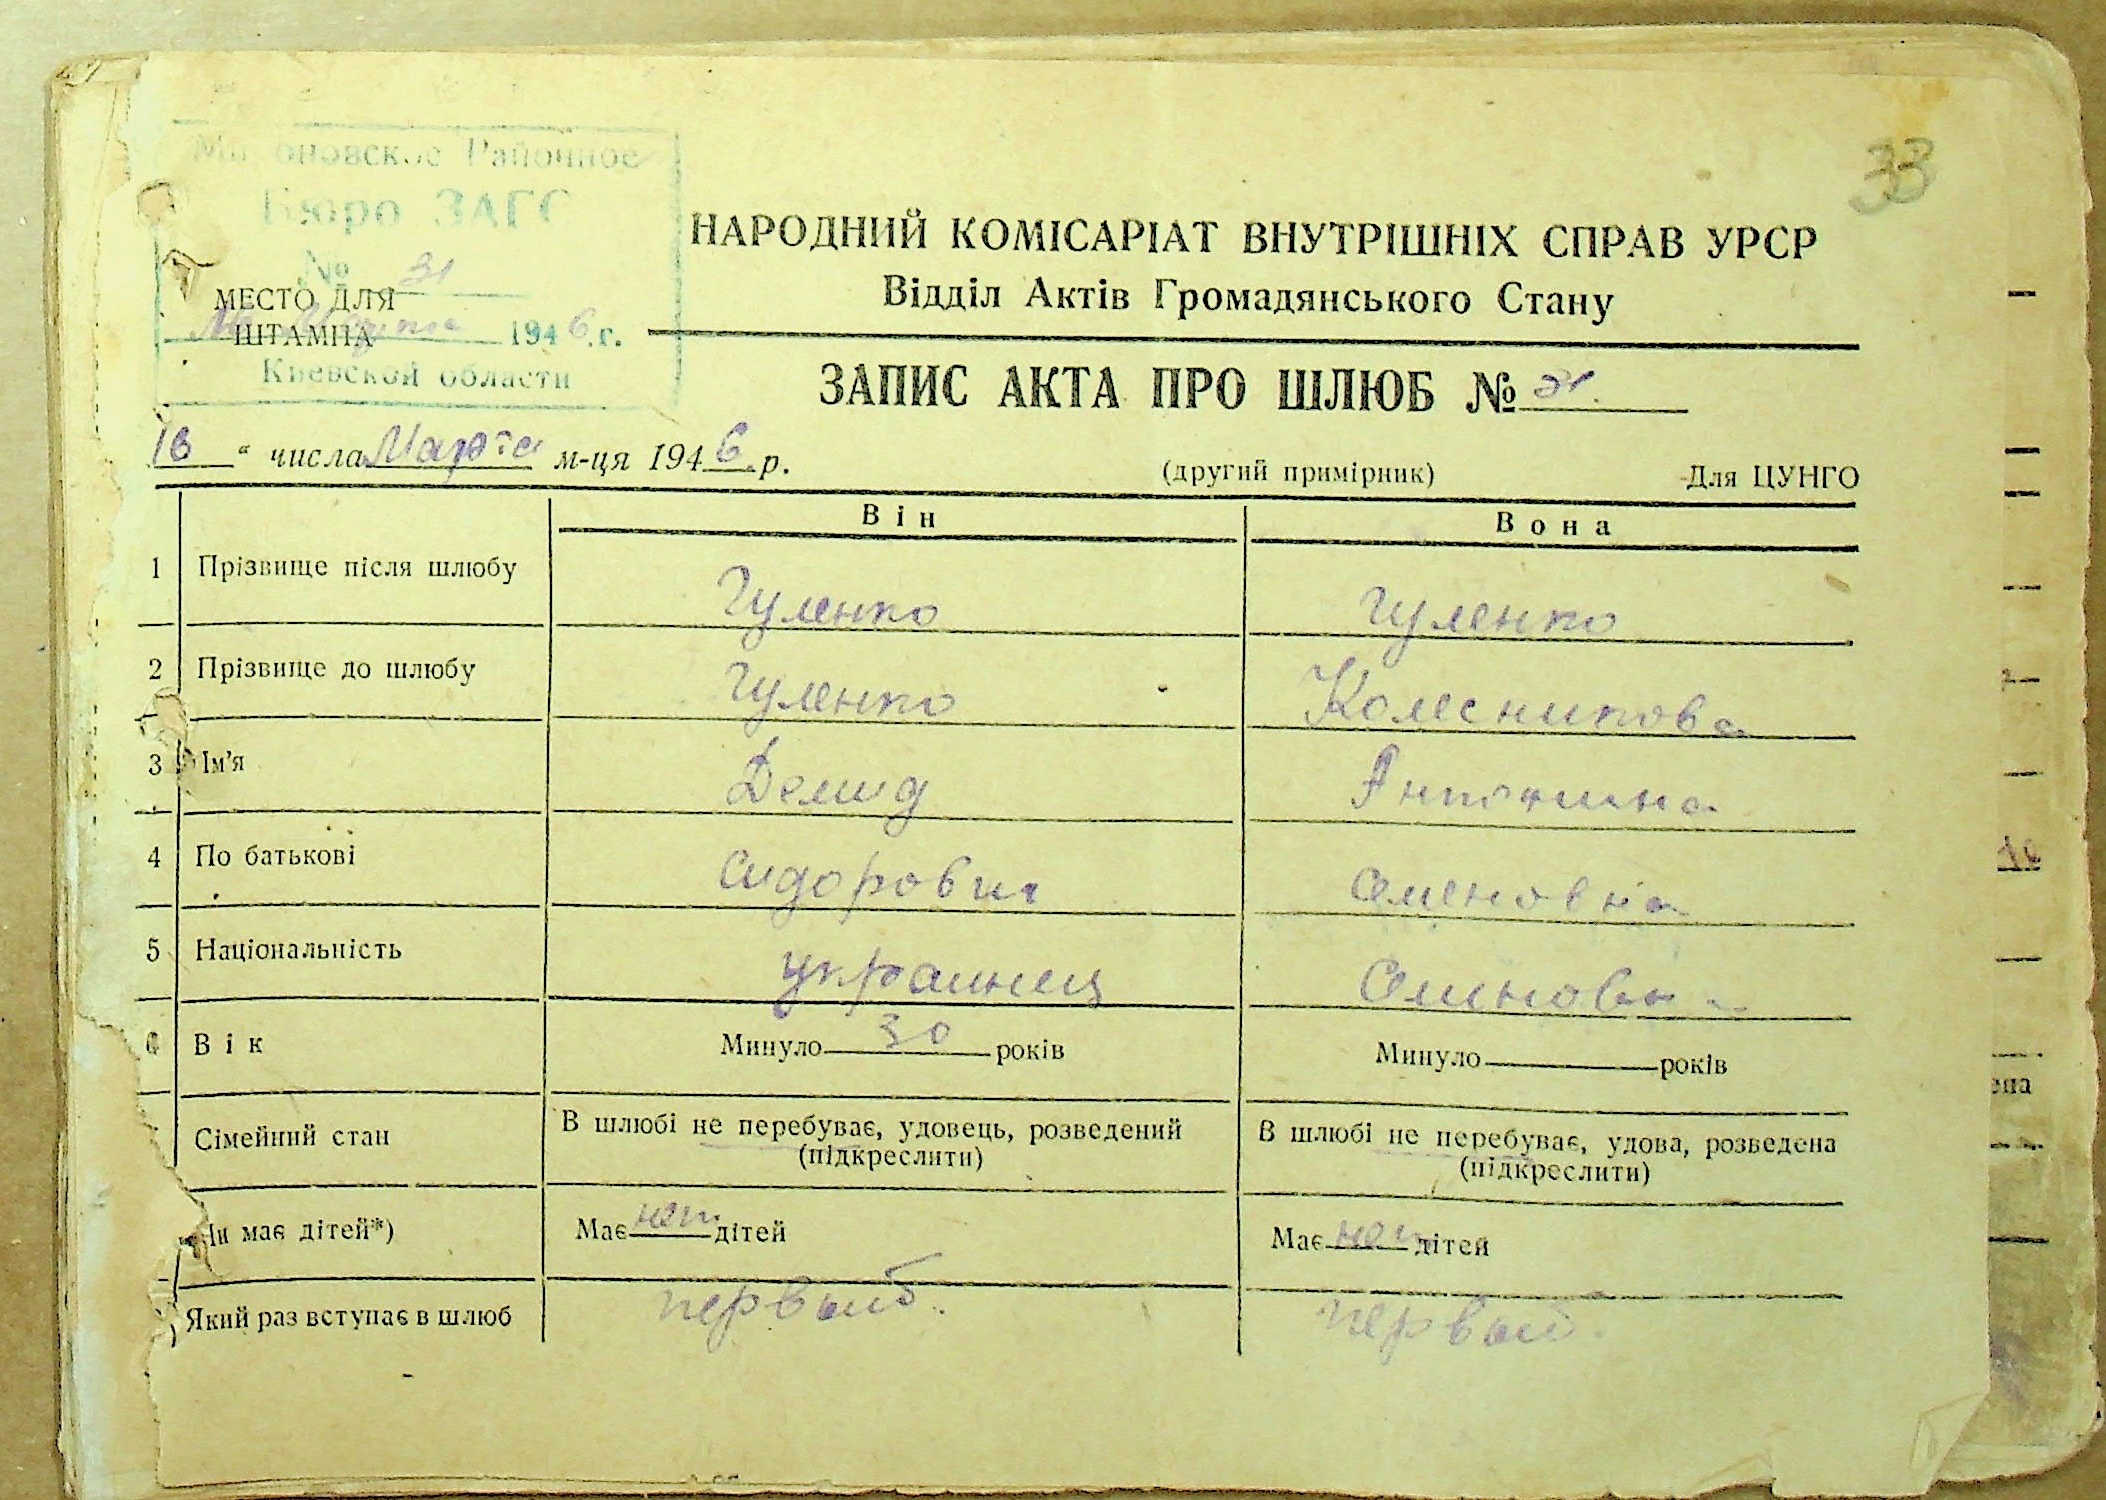 33
Мироновское Районное
Бюро ЗАГС
№ 31
МЕСТО ДЛЯ
ШТАМПА
Марта 1946 г.
Киевской области
НАРОДНИЙ КОМІСАРІАТ ВНУТРІШНІХ СПРАВ УРСР
Відділ Актів Громадянського Стану
ЗАПИС АКТА ПРО ШЛЮБ № 31.
16 " числа Марта м-ця 1946 р.
(другий примірник) Для ЦУНГО
Він Вона
1 Прізвище після шлюбу Гуленко Гуленко
2 Прізвище до шлюбу Гуленко Колесникова
3 Ім'я Демид Антонина
4 По батькові Сидорович Семеновна
5 Національність украинец Семиновна
6 Вік Минуло 30 років Минуло років
Сімейний стан В шлюбі не перебуває, удовець, розведений (підкреслити) В шлюбі не перебуває, удова, розведена (підкреслити)
Чи має дітей*) Має нет дітей Має нет дітей
Який раз вступає в шлюб первый. первый.